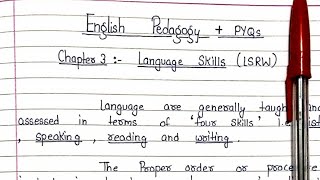 English Pedagogy + PYQs
Chapter 3 :- Language Skills (LSRW)
Language are generally taught
assessed in terms of 'four skills' i.e.
, speaking, reading and writing.
The Proper order or